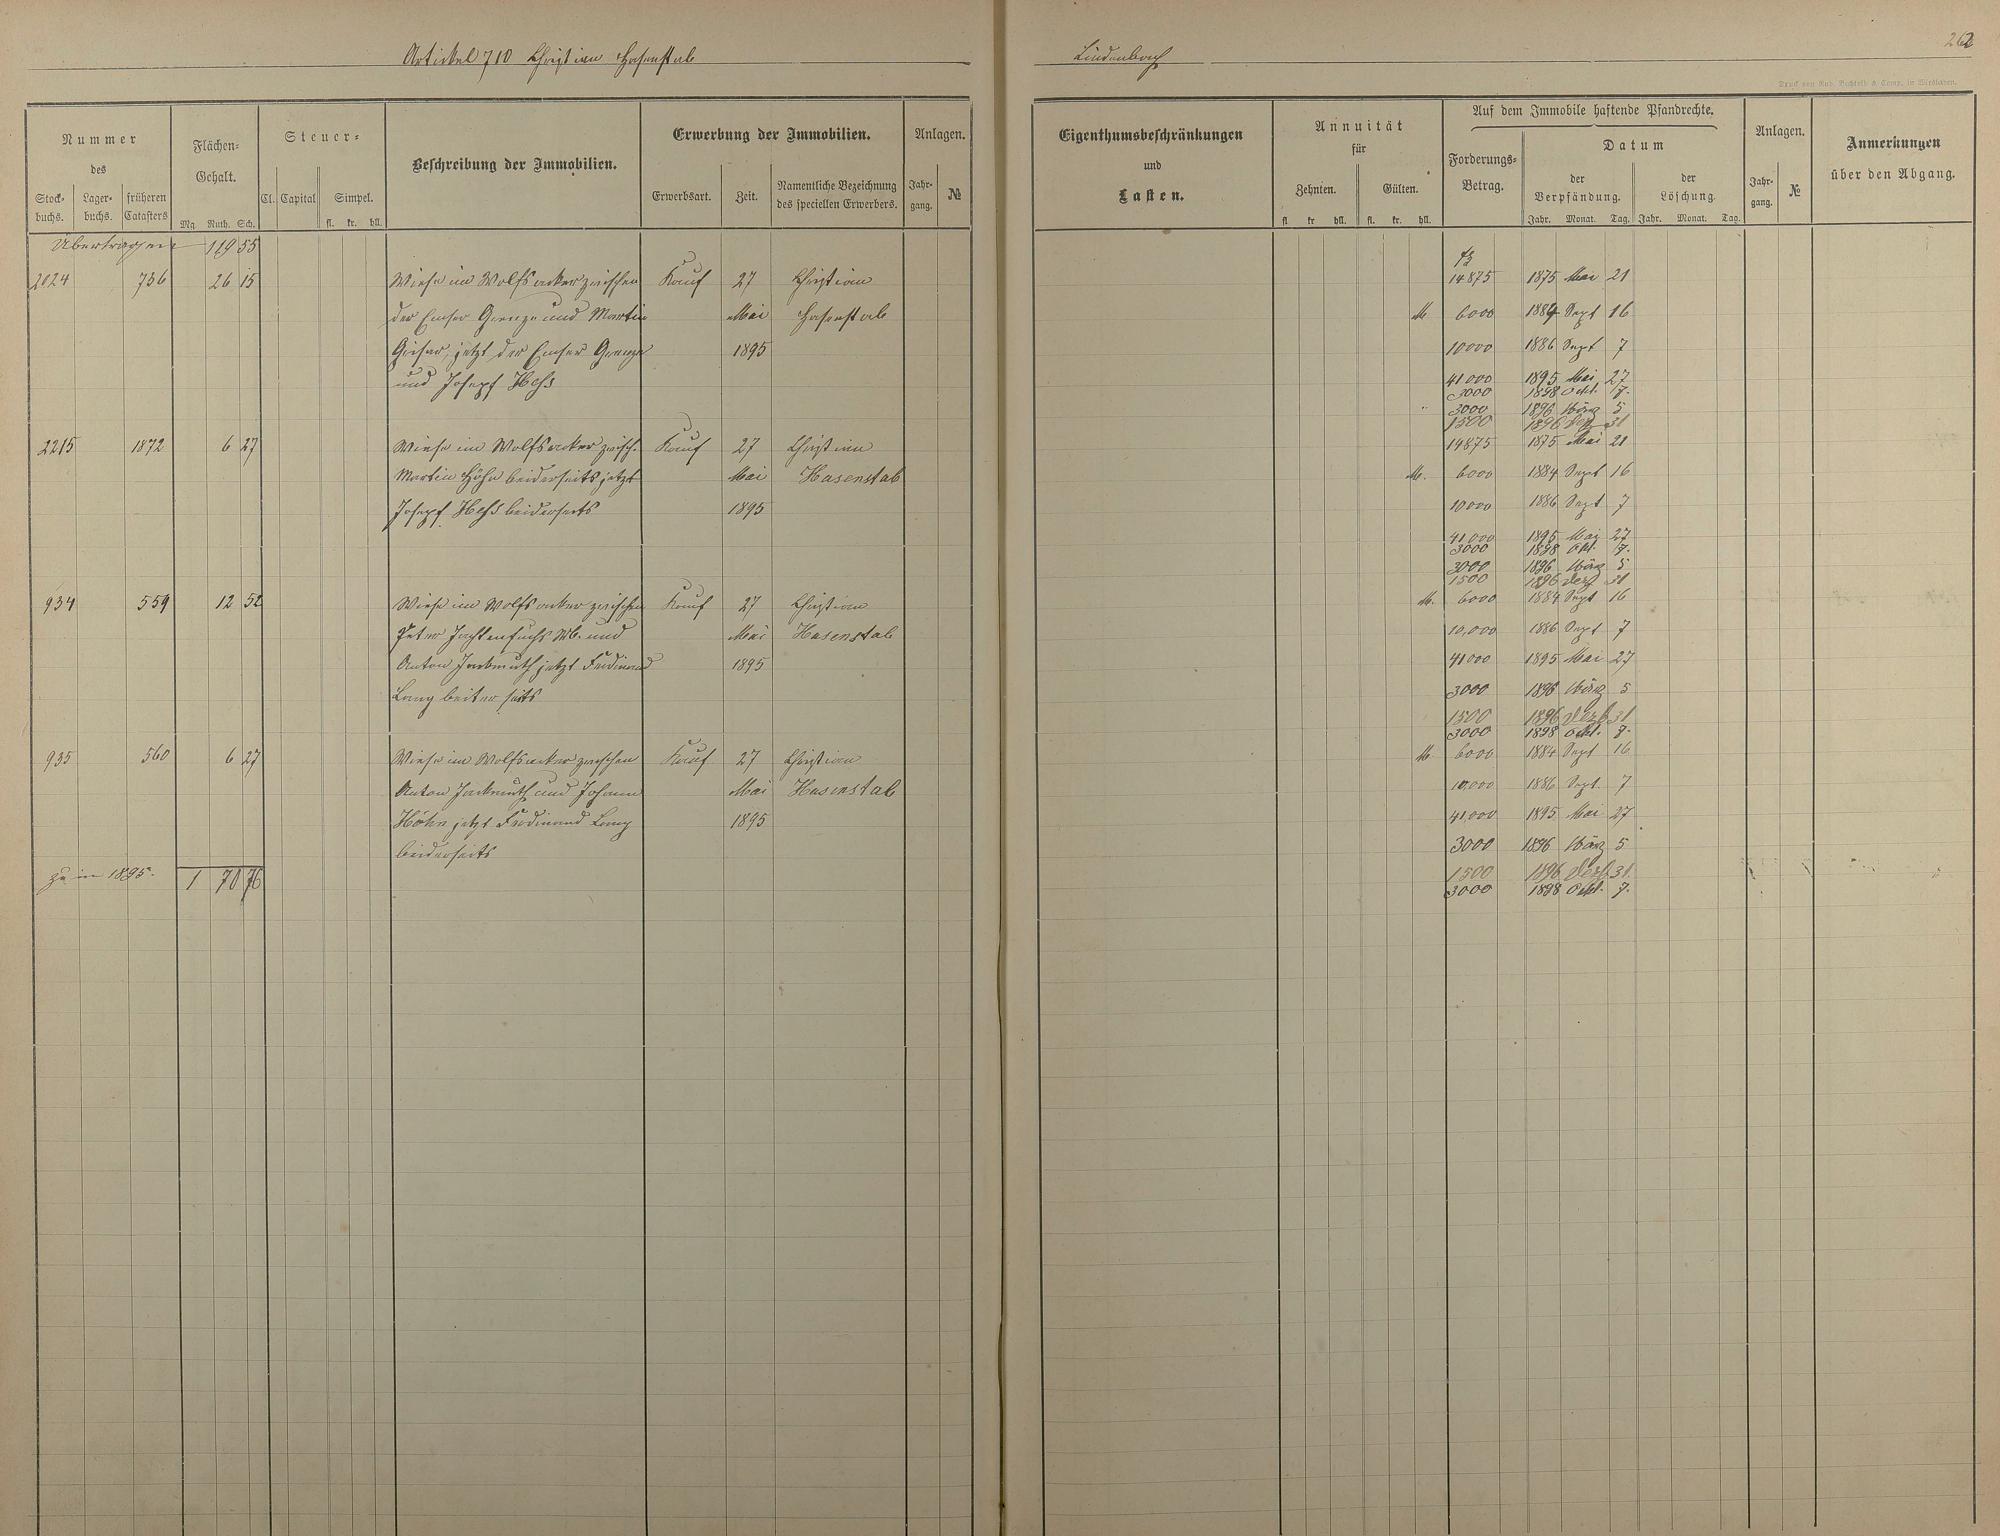 Artikel 710 Christian Hasenstab
Lindenbach
262
Druck von Rud. Bechtold & Comp. in Wiesbaden.
Nummer
des
Stock-
buchs.
Lager-
buchs.
früheren
Catasters
Flächen-
Gehalt.
Mg. Ruth. Sch.
Steuer-
Cl. Capital Simpel.
fl. kr. hll.
Beschreibung der Immobilien.
Erwerbung der Immobilien.
Erwerbsart. Zeit.
Namentliche Bezeichnung
des speciellen Erwerbers.
Anlagen.
Jahr-
gang.
№
Eigenthumsbeschränkungen
und
Lasten.
Annuität
für
Zehnten. Gülten.
fl. kr hll. fl. kr. hll.
Auf dem Immobile haftende Pfandrechte.
Forderungs-
Betrag.
Datum
der
Verpfändung.
der
Löschung.
Jahr. Monat. Tag. Jahr. Monat. Tag.
Anlagen.
Jahr-
gang.
№
Anmerkungen
über den Abgang.
Übertragen 119 55
2024 736 26 15 Wiese im Wolfsacker zwischen Kauf 27 Christian 14875 1875 Mai 21
der Emser Grenze und Martin Mai Hasenstab M. 6000 1884 Sept 16
jetzt der Emser Grenze 1895 10000 1886 Sept 7
und Josef Hehs
41000 1895 Mai 27
3000 1898 Okt. 7.
3000 1896 März 5
1500 1896 Dez 31
2215 1872 6 27 Wiese im Wolfsacker zwisch. Kauf 27 Christian 14875 1875 Mai 21
Martin Höhn beiderseits jetzt Mai Hasenstab M. 6000 1884 Sept 16
Josef Hehs beiderseits 1895 10000 1886 Sept 7
41,000 1895 Mai 27
3000 1898 Okt. 7.
3000 1896 März 5
1500 1896 Dez 31
934 559 12 52 Wiese im Wolfsacker zwischen Kauf 27 Christian M. 6000 1884 Sept 16
Peter Jachtenfuchs Wb. und Mai Hasenstab 10,000 1886 Sept 7
Anton Jackmuth jetzt Ferdinand 1895 41000 1895 Mai 27
Lang beiterseits 3000 1896 März 5
1500 1896 Dezb 31
3000 1898 Okt. 7.
935 560 6 27 Wiese im Wolfsacker zwischen Kauf 27 Christian M. 6000 1884 Sept 16
Anton Jackmuth und Johann Mai Hasenstab 10,000 1886 Sept. 7
Höhn jetzt Ferdinand Lang 1895 41,000 1895 Mai 27
beiderseits 3000 1896 März 5
1895. 1 70 76 1500 1896 Dezb 31.
3000 1898 Okt. 7.